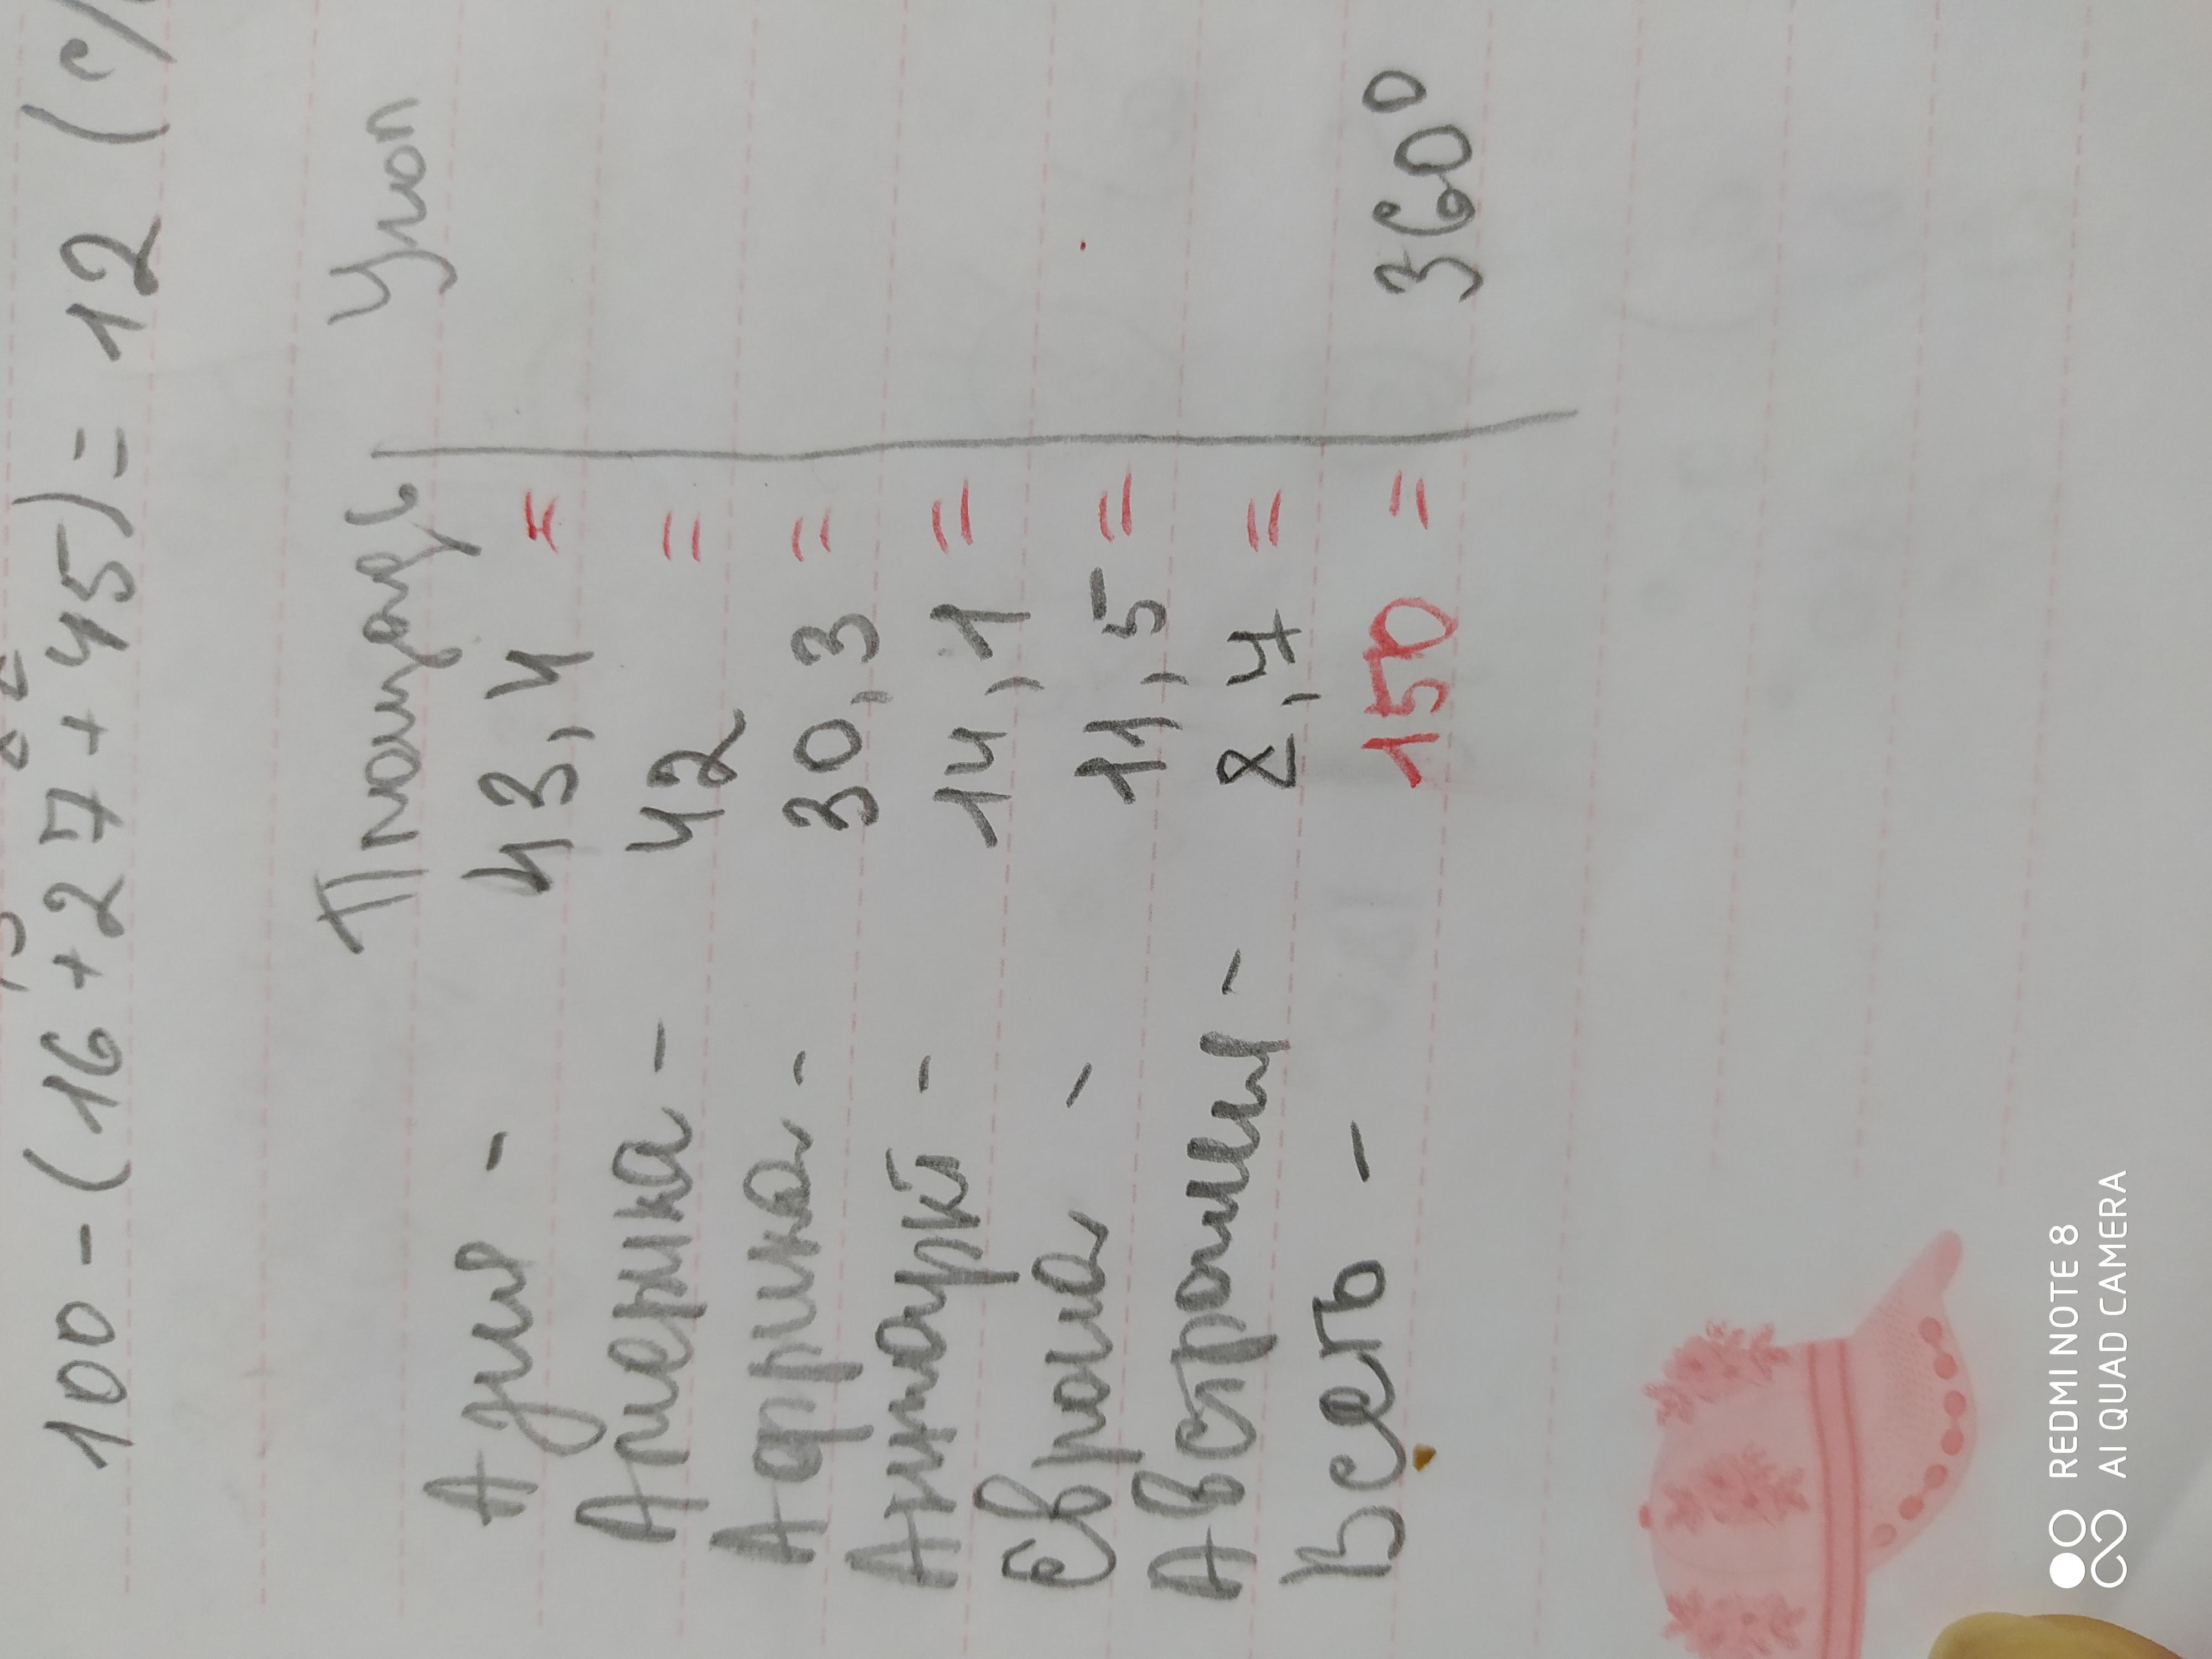 100 - (16 + 27 + 45) = 12 (
Площадь Угол
Азия - 43,4 =
Америка - 42 =
Африка - 30,3 =
14,1 =
Европа - 11,5 =
Австралия - 8,7 =
Весть - 150 = 360°
REDMI NOTE 8
AI QUAD CAMERA